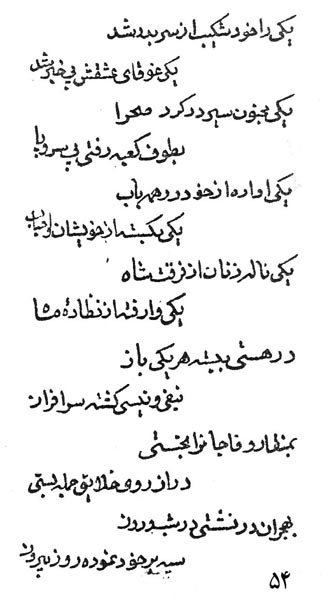 یکی را خود شکیب از سر بدر شد
یکی غوغای عشقش بی خبر شد
یکی مجنون سیر در کرد صحرا
بطوف کعبه رفتی بی سر و پا
یکی اواره از خود در رهم باب
یکی بگسسته از خویشان و
یکی ناله زنان از فرقت شاه
یکی وارفته از نظارهٔ ماه
در هستی ببسته هر یکی باز
نیفی و نیسی گشته سرافراز
بمنظار وفا جانرا بخستی
در از روی خلایق جمله بستی
بهجران در نشستی در شب و روز
سیه بر خود نموده روز پیروز
۵۴